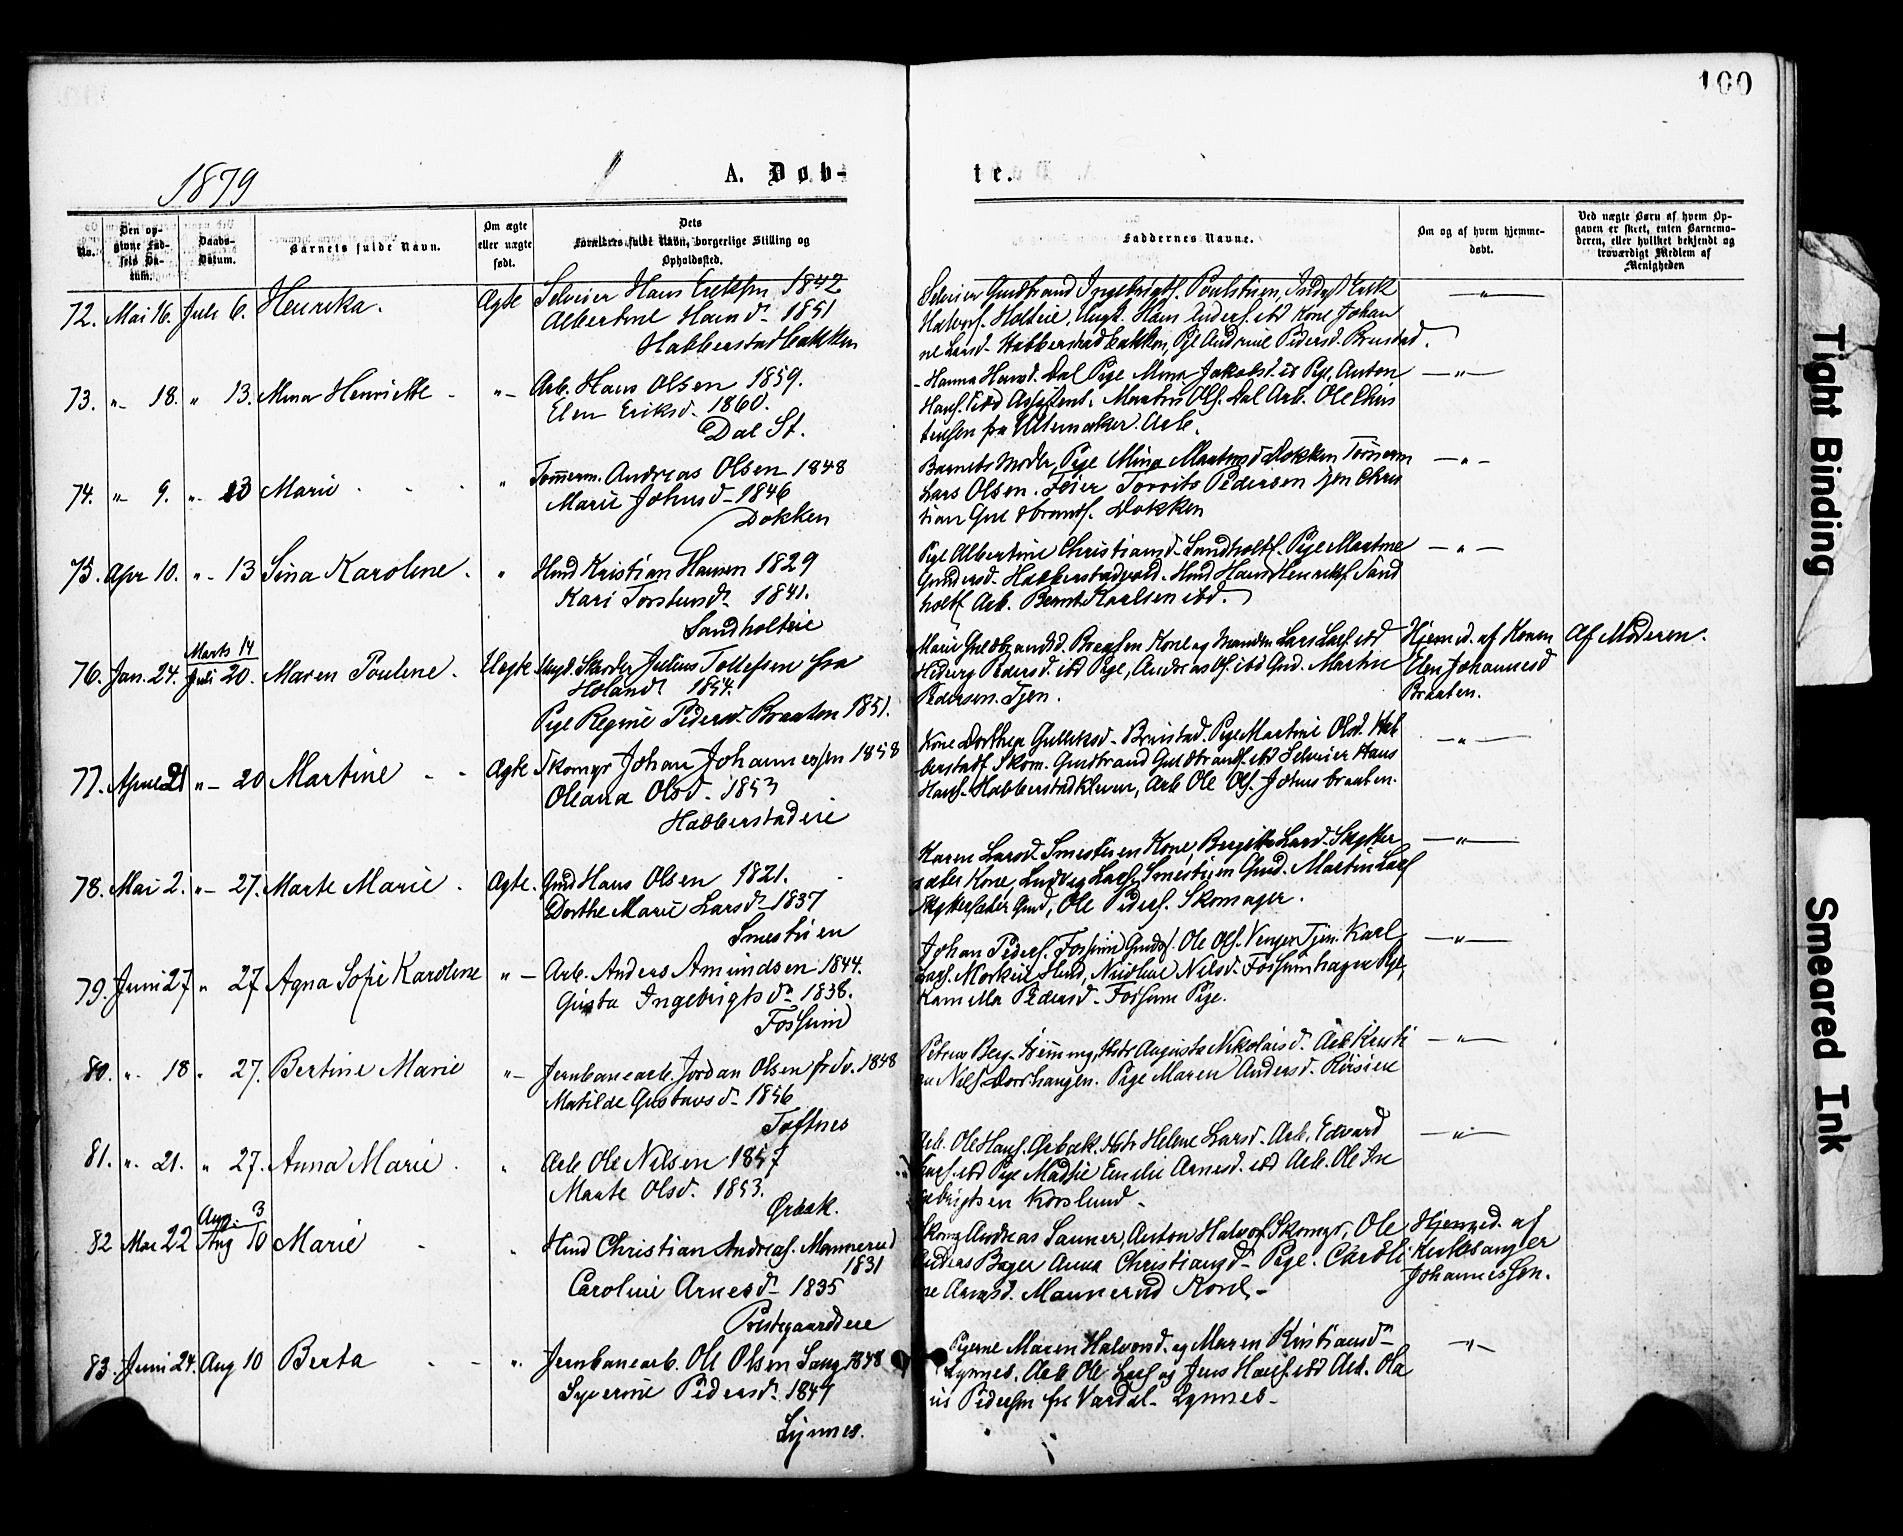 100
1879
A. Døb-
te.
No.
Den op-
givne Fød-
sels Da-
tum.
Daabs-
Datum.
Barnets fulde Navn.
Om ægte
eller uægte
født.
Dets
Forældres fulde Navn, borgerlige Stilling og
Opholdssted.
Faddernes Navne.
Om og af hvem hjemme-
døbt.
Ved uægte Børn af hvem Op-
gaven er skeet, enten Barnemo-
deren, eller hvilket bekjendt og
troværdigt Medlem af
Menigheden
72. Mai 16. Juli 6. Henrika. Ægte Selveier Hans 1842
Albertine Hansd. 1851
Habberstadbakken
Selveier Gudbrand Ingebrigts.
Halvors. Holteie, Hans Anders. ibd Kone Johan
ne Larsd. Habberstadbakken, Pige Andrine Pedersd. Brustad.
73. "- 18. " 13. Mina Henriette "- Arb. Hans Olsen 1859.
Elen Eriksd. 1860.
Dal St.
Hanna Hansd. Dal Pige Mina Jakobsd. Anton
Hans. ibd Assistent. Martin Ols. Dal Arb. Ole Chris
tensen fra Ullensaker. Arb.
74. "- 9. "- 13 Marie " Tømerm. Andreas Olsen 1848
Marie Johnsd. 1846
Dokken
Barnets Moder, Pige Mina Dokken Tømerm
Lars Olsen. Pedersen Tjen Chris
tian Guldbrands. Dokken
75. Apr 10. "- 13 Sina Karoline. " Hmd Kristian Hansen 1829
Kari Torstensd. 1841.
Sandholteie
Pige Albertine Christiansd. Sandholt. Pige Martine
Gundersd. Habberstadvold. Hmd Hans Henriks. Sand
holt. Arb. Bernt Karlsen ibd.
76. Jan. 24. Marts 14
Juli 20. Maren Pouline. Uægte Ungk. Julius Tollefsen fra
Høland 1854.
Pige Regine Pedersd. Braaten 1851.
Marie Guldbrandsd. Braaten Kone og Manden Lars Lars. ibd
Hedvig Pedersd. ibd Pige, Andreas Ols. ibd Gmd. Martin
Pedersen. Tjen.
Hjemmed. af Konen
Elen Johannesd
Braaten.
Af Moderen.
77. April 21 "- 20 Martine Ægte Skomgr Johan Johannessen 1858
Oleana Olsd. 1853
Habberstadeie
Kone Dorthea Gulliksd. Brustad. Pige Martine Olsd. Hab
berstad. Skom. Gudbrand Guldbrands. ibd Selveier Hans
Hans. Habberstadkleven, Arb Ole Ols. Johnsbraaten.
78. Mai 2. "- 27. Marte Marie Ægte. Gmd Hans Olsen 1821.
Dorthe Marie Larsd. 1837
Smestuen
Karen Larsd. Smestuen Kone, Bergitte Larsd. Skytter
sæter Kone, Ludvig Lars. Smestuen Gmd. Martin Lars
Skyttersæter Gmd, Ole Peders. Skomager.
79. Juni 27 " 27 Agna Sofie Karoline "- Arb. Anders Amundsen 1844.
Gusta Ingebrigtsd. 1838.
Fossum
Johan Peders. Fossum Ole Ols. Venger Tjen. Karl
Lars. Morkeie Hmd, Nicoline Nilsd. Fossumhagen Pige,
Kamilla Pedersd. Fossum Pige.
80. "- 18 " 27. Bertine Marie "- Jernbanearb. Jordan Olsen fr Sv. 1848
Matilde Gustavsd. 1856
Toftnes
Petrus Berg. Augusta Nikolaisd. Arb Kristi
an Nils. Dorrhaugen. Pige Maren Andersd. Røisien
81. "- 21. " 27. Anna Marie " Arb Ole Nilsen 1857
Marte Olsd. 1853.
Ørbæk.
Arb. Ole Hans. Ørbæk. Helene Larsd. Arb. Edvard
Lars. ibd Pige Mathie Emilie Arnesd. ibd Arb. Ole In
gebrigtsen Korslund.
82 Mai 22 Aug. 3
Aug 10 Marie " Hmd Christian Andreas. Mannerud
1831
Caroline Arnesd. 1835
Prestegaardseie
Skomg Andreas Sanner, Anton Halvors Skomgr, Ole
Anders Bager Anna Christiansd. Pige. Caroli
ne Arnesd. Mannerud Kone.
Hjemmed. af
Kirkesanger
Johannessen.
83. Juni 24. Aug 10 Berta " Jernbanearb. Ole Olsen 1848
Syverine Pedersd. 1847
Lynnes.
Pigerne Maren Halvorsd. og Maren Kristiansd.
Lynnes. Arb Ole Lars og Jens Hans. ibd Arb. Ola
us Pedersen fra Vardal. Lynnes.
Tight Binding
Smeared Ink